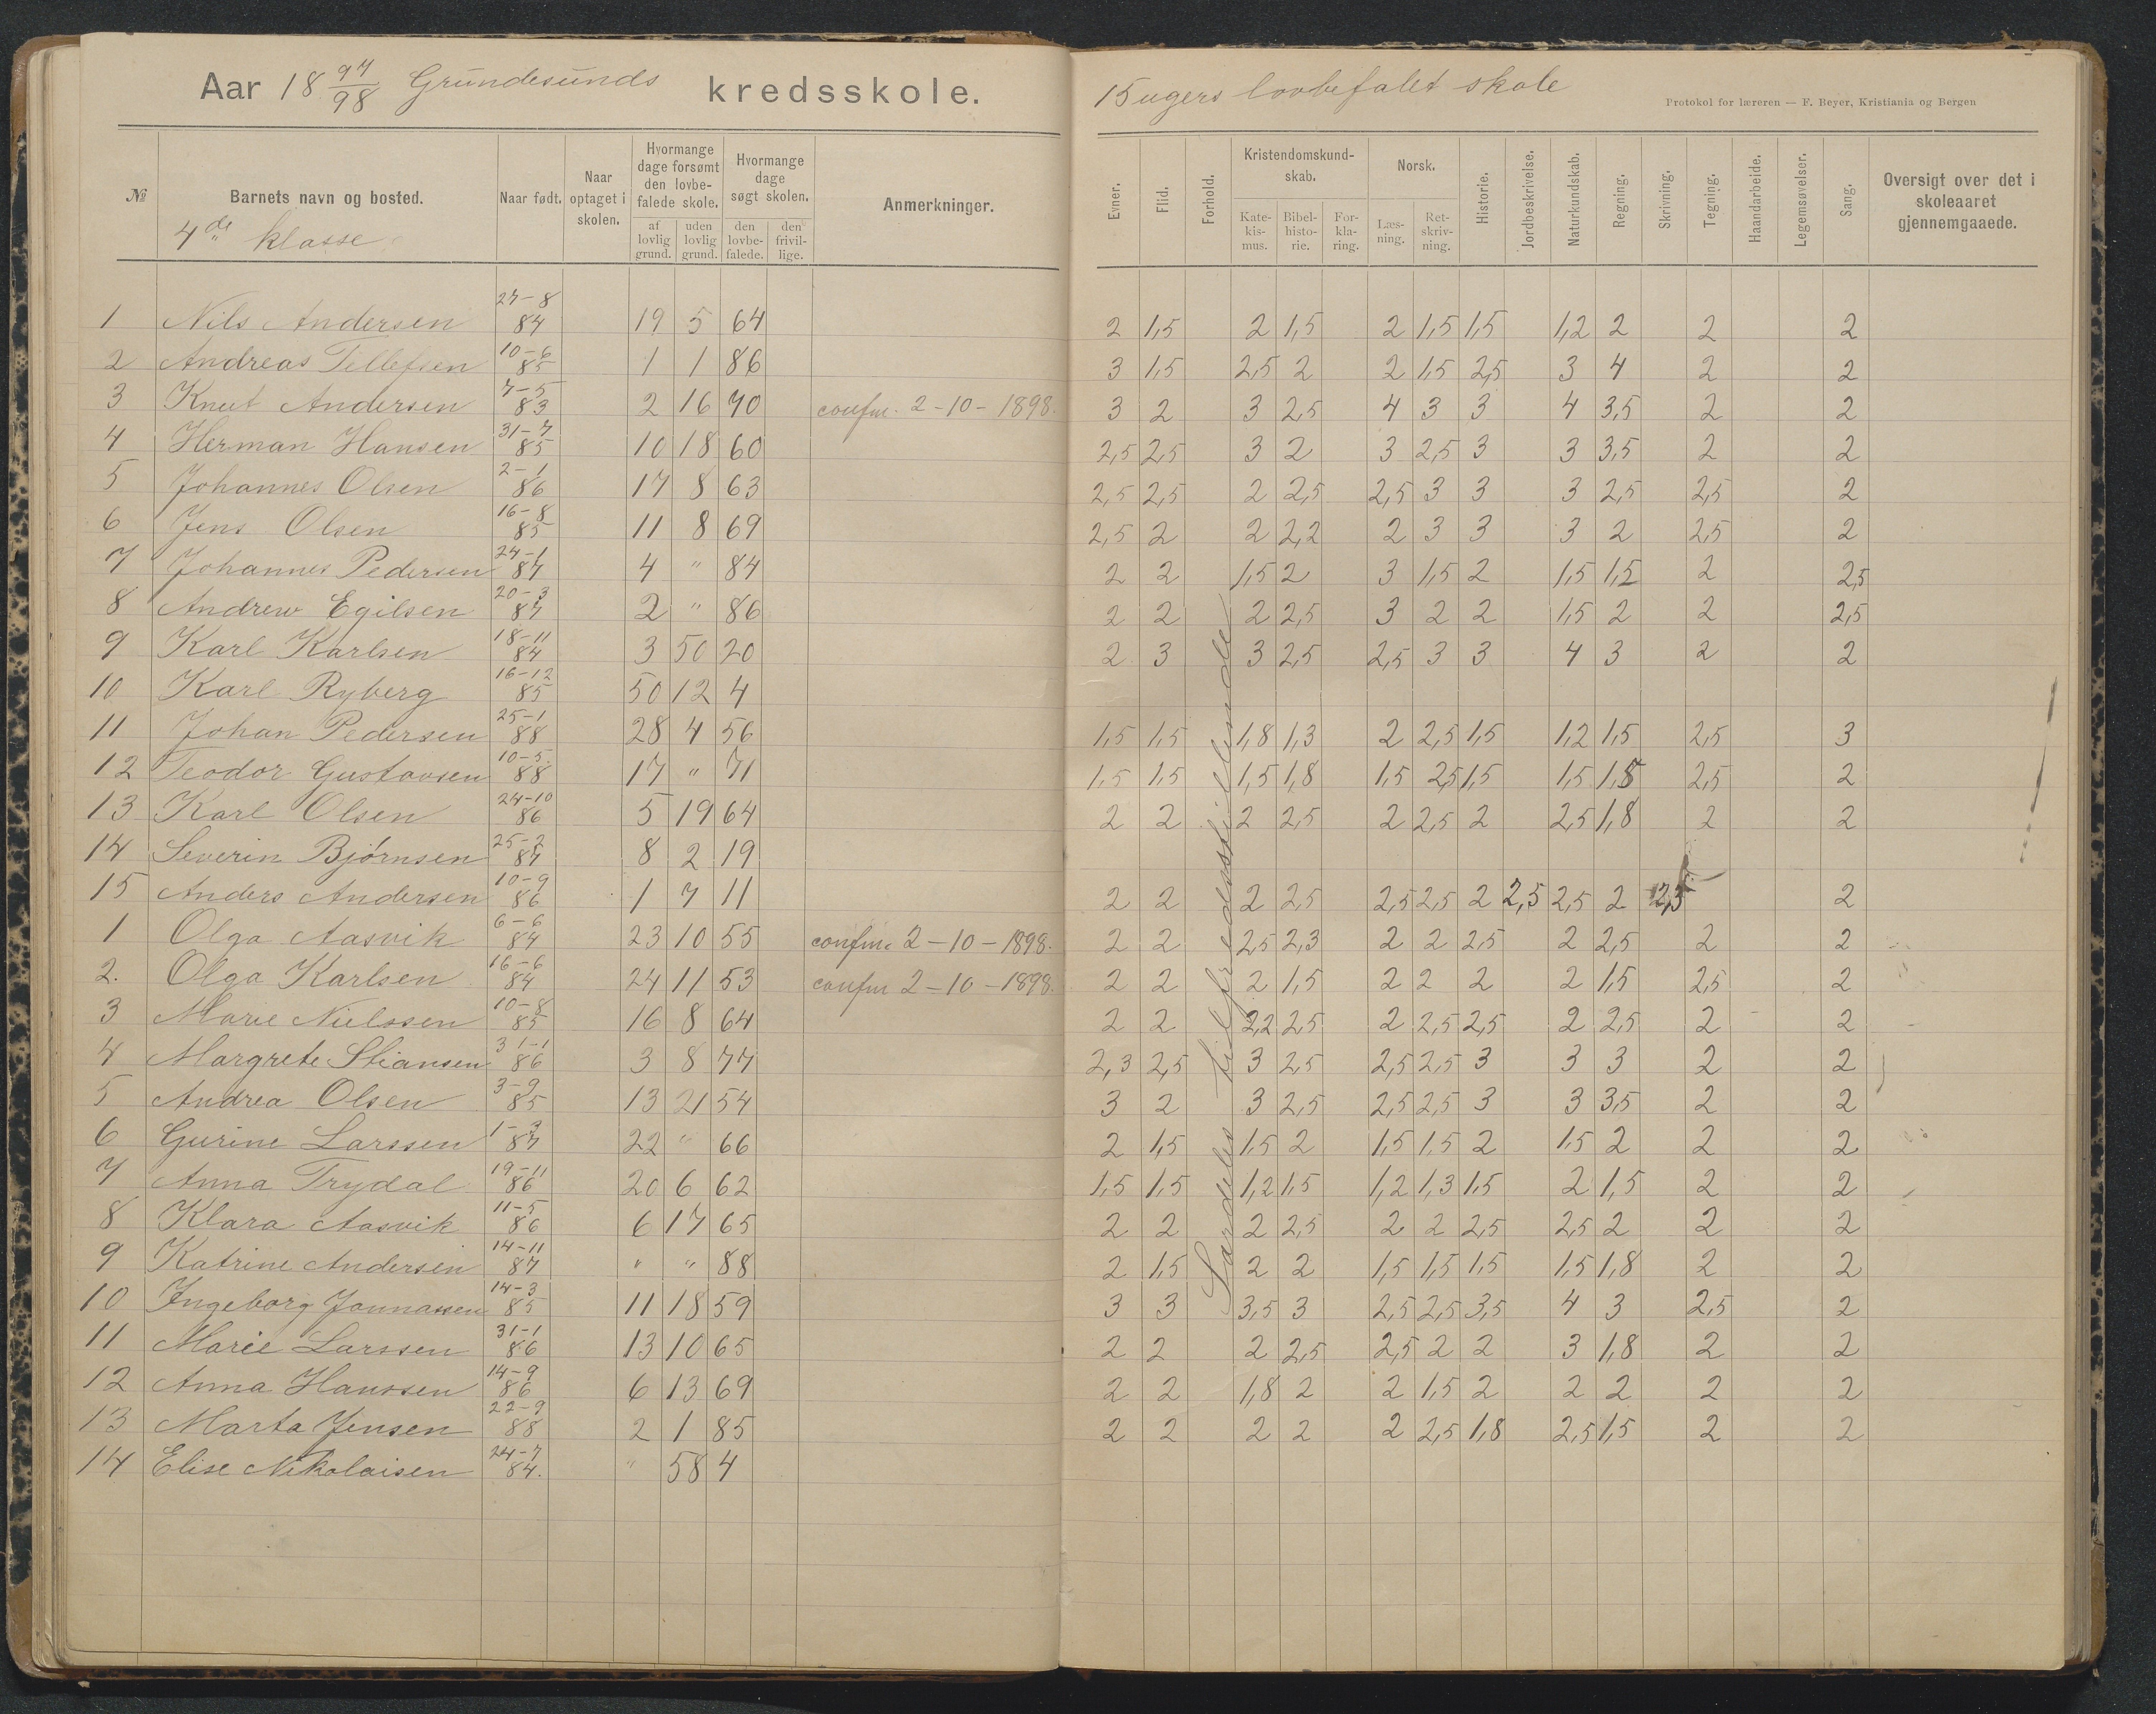 Aar 18 97/98 Grundesunds kredsskole.
15 ugers lovbefalet skole
Protokol for læreren — F. Beyer, Kristiania og Bergen
№ Barnets navn og bosted. Naar født. Naar optaget i skolen. Hvormange dage forsømt den lovbefalede skole. af lovlig grund. uden lovlig grund. Hvormange dage søgt skolen. den lovbefalede. den frivillige. Anmerkninger.
Evner. Flid. Forhold. Kristendomskundskab. Katekismus. Bibelhistorie. Forklaring. Norsk. Læsning. Retskrivning. Historie. Jordbeskrivelse. Naturkundskab. Regning. Skrivning. Tegning. Haandarbeide. Legemsøvelser. Sang. Oversigt over det i skoleaaret gjennemgaaede.
4de klasse
1 Nils Andersen 27-8 84 19 5 64 2 1,5 2 1,5 2 1,5 1,5 1,2 2 2 2
2 Andreas Tellefsen 10-6 85 1 1 86 3 1,5 2,5 2 2 1,5 2,5 3 4 2 2
3 Knut Andersen 7-5 83 2 16 70 confm. 2-10-1898. 3 2 3 2,5 4 3 3 4 3,5 2 2
4 Herman Hansen 31-7 85 10 18 60 2,5 2,5 3 2 3 2,5 3 3 3,5 2 2
5 Johannes Olsen 2-1 86 17 8 63 2,5 2,5 2 2,5 2,5 3 3 3 2,5 2,5 2
6 Jens Olsen 16-8 85 11 8 69 2,5 2 2 2,2 2 3 3 3 2 2,5 2
7 Johannes Pedersen 24-1 87 4 " 84 2 2 1,5 2 3 1,5 2 1,5 1,5 2 2,5
8 Andrew Egilsen 20-3 87 2 " 86 2 2 2 2,5 3 2 2 1,5 2 2 2,5
9 Karl Karlsen 18-11 84 3 50 20 2 3 3 2,5 2,5 3 3 4 3 2 2
10 Karl Ryberg 16-12 85 50 12 4
11 Johan Pedersen 25-1 88 28 4 56 1,5 1,5 1,8 1,3 2 2,5 1,5 1,2 1,5 2,5 3
12 Teodor Gustavsen 10-5. 88 17 " 71 1,5 1,5 1,5 1,8 1,5 2,5 1,5 1,5 1,5 2,5 2
13 Karl Olsen 24-10 86 5 19 64 2 2 2 2,5 2 2,5 2 2,5 1,8 2 2
14 Severin Bjørnsen 25-2 87 8 2 19
15 Anders Andersen 10-9 86 1 7 11 2 2 2 2,5 2,5 2,5 2 2,5 2,5 2 2,5 2
1 Olga Aasvik 6-6 84 23 10 55 confm. 2-10-1898. 2 2 2,5 2,3 2 2 2,5 2 2,5 2 2
2. Olga Karlsen 16-6 84 24 11 53 confm 2-10-1898. 2 2 2 1,5 2 2 2 2 1,5 2,5 2
3 Marie Nielssen 10-8 85 16 8 64 2 2 2,2 2,5 2 2,5 2,5 2 2,5 2 2
4 Margrete Stiansen 31-1 86 3 8 77 2,3 2,5 3 2,5 2,5 2,5 3 3 3 2 2
5 Andrea Olsen 3-9 85 13 21 54 3 2 3 2,5 2,5 2,5 3 3 3,5 2 2
6 Gurine Larssen 1-3 87 22 " 66 2 1,5 1,5 2 1,5 1,5 2 1,5 2 2 2
7 Anna Trydal 19-11 86 20 6 62 1,5 1,5 1,2 1,5 1,2 1,3 1,5 2 1,5 2 2
8 Klara Aasvik 11-5 86 6 17 65 2 2 2 2,5 2 2 2,5 2,5 2 2 2
9 Katrine Andersen 14-11 87 " " 88 2 1,5 2 2 1,5 1,5 1,5 1,5 1,8 2 2
10 Ingeborg Jonnassen 14-3 85 11 18 59 3 3 3,5 3 2,5 2,5 3,5 4 3 2,5 2
11 Marie Larssen 31-1 86 13 10 65 2 2 2 2,5 2,5 2 2 3 1,8 2 2
12 Anna Hanssen 14-9 86 6 13 69 2 2 1,8 2 2 1,5 2 2 2 2 2
13 Marta Jensen 22-9 88 2 1 85 2 2 2 2 2 2,5 1,8 2,5 1,5 2 2
14 Elise Nikolaisen 24-7 84. " 58 4
Særdeles tilfredsstillende